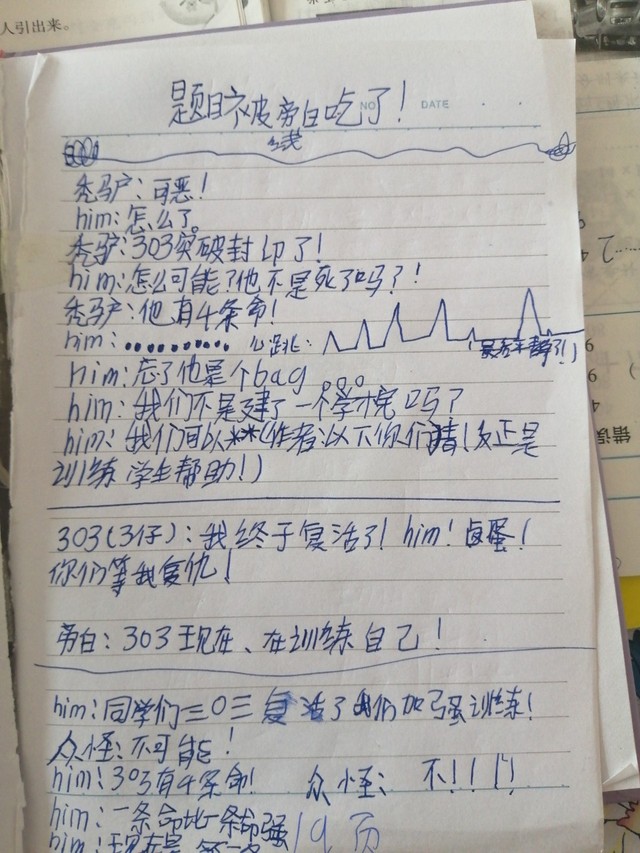 人引出来。
题目被旁白吃了!
NO DATE
线
秃驴:可恶!
him:怎么了。
秃驴:303突破封印了!
him:怎么可能了他不是死了吗?!
秃驴:他有4条命!
him:.......... 心跳:
him:忘了他是个bag。。。
him:我们不是建了一个学校吗?
him:我们可以**(作者:以下你们猜!反正是
训练学生帮助!)
303(3仔):我终于复活了!him!卤蛋!
你们等我复仇!
旁白:303现在、在训练自己!
him:同学们三〇三复活了我们加强训练!
众怪:不可能!
him:303有4条命! 众怪:不!!!!
him:一条命比一条命强
19页
him:现在是
错误